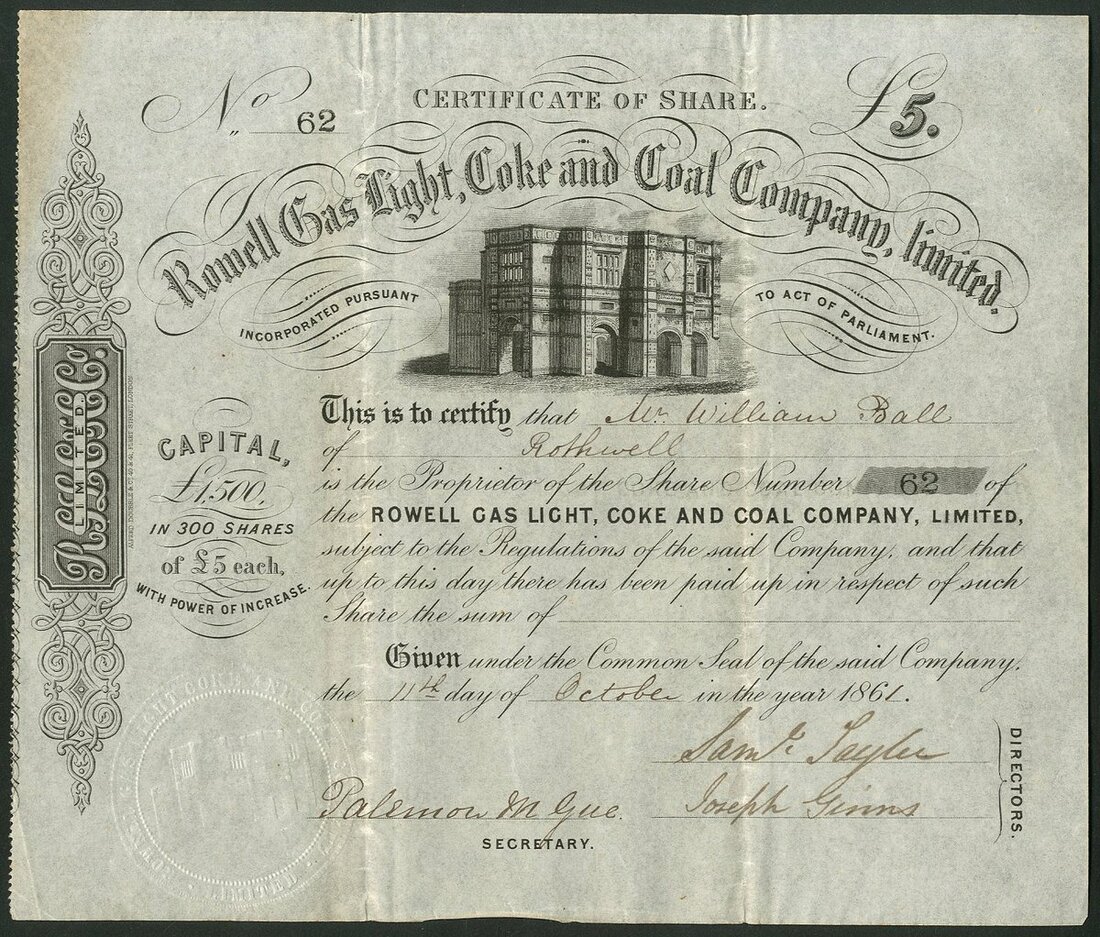 No 62
CERTIFICATE OF SHARE.
£5.
Rowell Gas Light, Coke and Coal Company, limited.
INCORPORATED PURSUANT TO ACT OF PARLIAMENT.
R.G.L.C.&C.Co.
LIMITED.
CAPITAL,
£1,500,
IN 300 SHARES
of £5 each,
WITH POWER OF INCREASE.
This is to certify that Mr. William Ball
of Rothwell
is the Proprietor of the Share Number 62 of
the ROWELL GAS LIGHT, COKE AND COAL COMPANY, LIMITED,
subject to the Regulations of the said Company, and that
up to this day there has been paid up in respect of such
Share the sum of
Given under the Common Seal of the said Company,
the 11th day of October in the year 1861.
Saml. Tayler
Joseph Ginns
DIRECTORS.
Palemon M Gee.
SECRETARY.
GAS LIGHT COKE AND CO
LIMITED